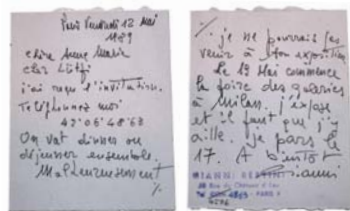 Paris Vendredi 12 Mai
1989
chère Anne Marie
cher Lütfi
j'ai reçu l'invitation.
Téléphonez moi
42.06.48.63
On vat dinner ou
déjeuner ensemble.
Malheureusement
%
%. je ne pourrais pas
venir à ton exposition
Le 19 Mai commence
la foire des galeries
à Milan. j'expose
et il faut que j'y
aille. je pars le
17. A bientot
Gianni
GIANNI BERTINI
Rue du Château d'Eau
PARIS